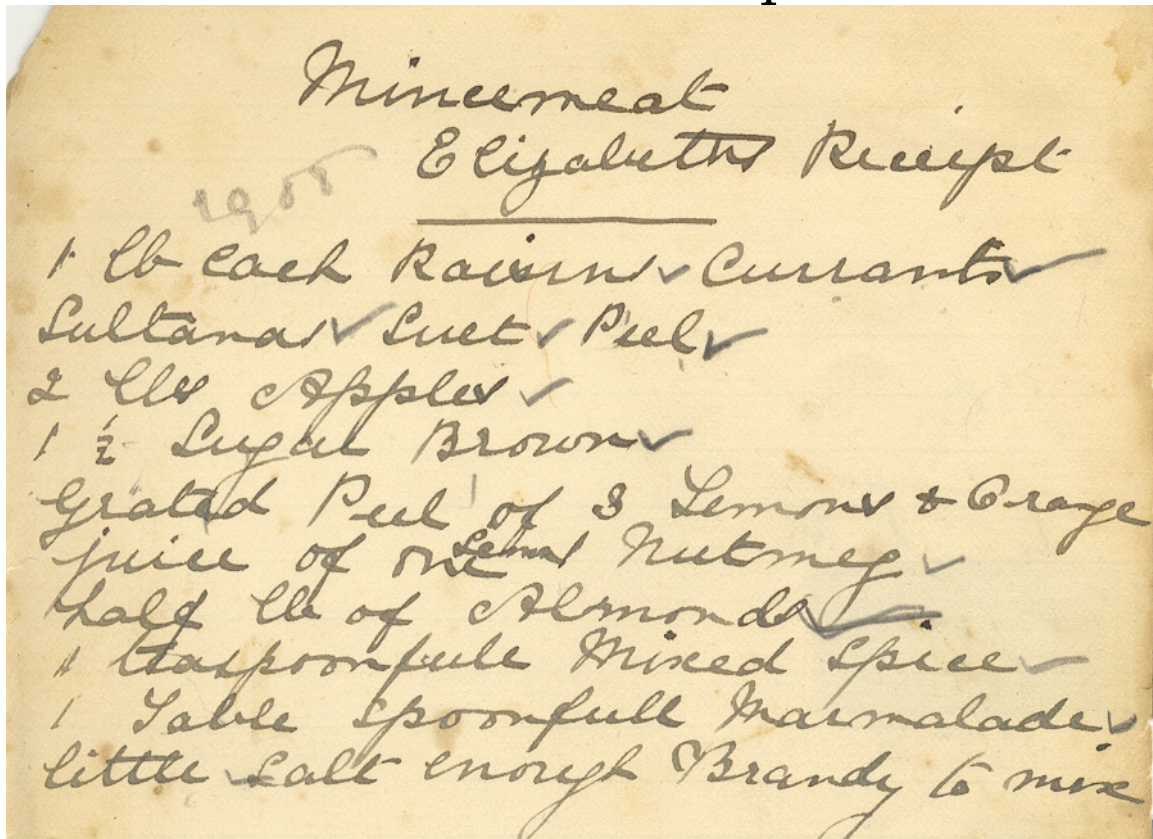 Mincemeat
Elizabeths Receipt
1 lb each Raisins ✓ Currants ✓
Sultanas ✓ Suet ✓ Peel ✓
2 lbs Apples ✓
1 ½ Sugar Brown ✓
Grated Peel of 3 Lemons & Orange
juice of one Lemon Nutmeg ✓
half lb of Almonds ✓
1 teaspoonfull Mixed Spice ✓
1 Table spoonfull Marmalade ✓
little salt enough Brandy to mix